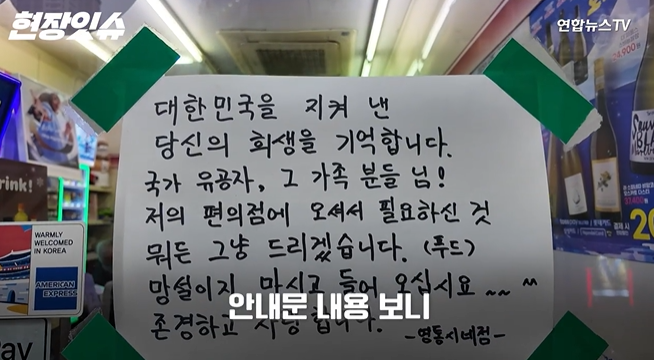 현장잇슈
연합뉴스TV
대한민국을 지켜 낸
당신의 희생을 기억합니다.
국가 유공자, 그 가족 분들 님!
저의 편의점에 오셔서 필요하신 것
뭐든 그냥 드리겠습니다. (푸드)
망설이지 마시고 들어 오십시요 ~~ ^^
존경하고 사랑합니다.
-영통시네점-
안내문 내용 보니
rink!
WARMLY
WELCOMED
IN KOREA
AMERICAN
EXPRESS
Pay